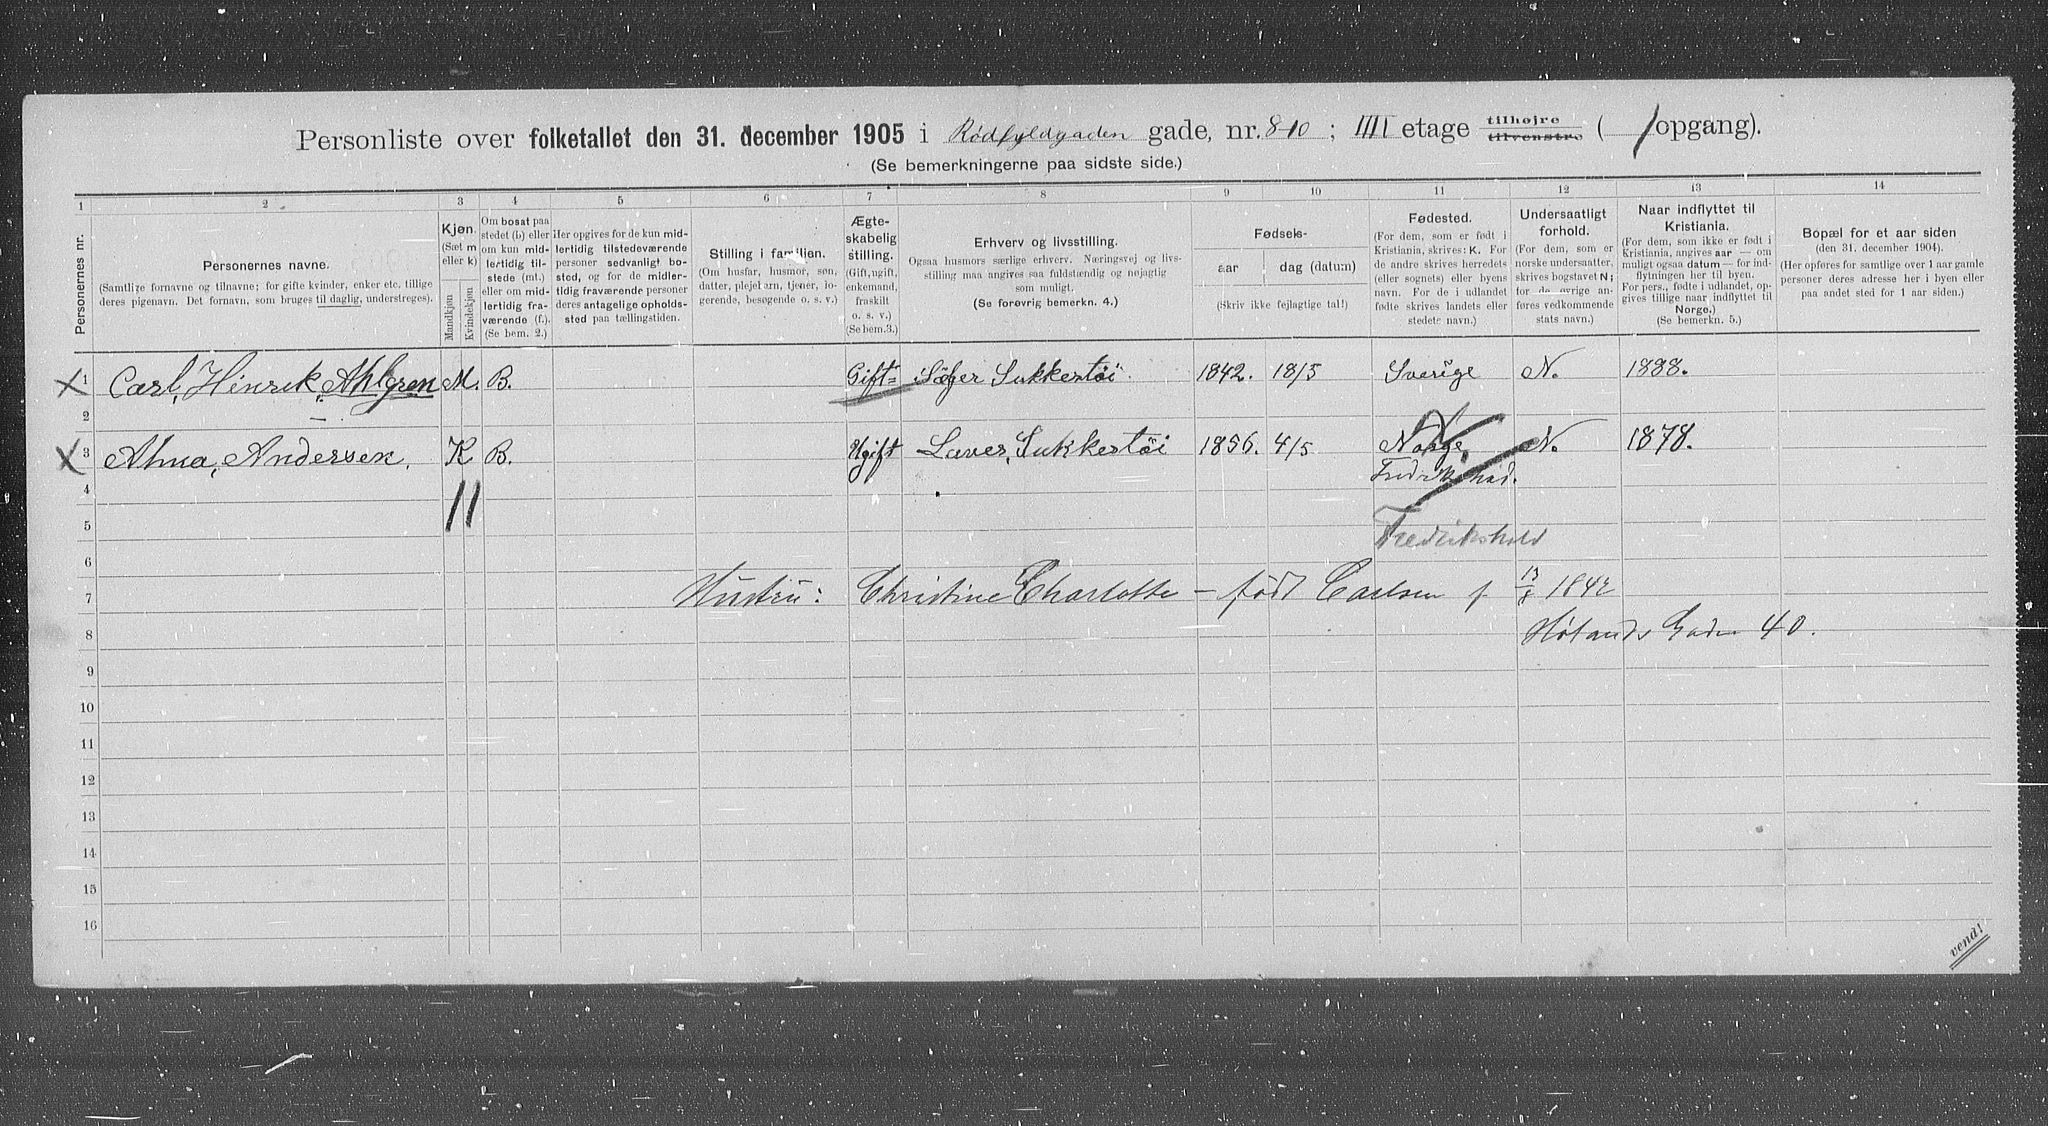 Personliste over folketallet den 31. december 1905 i Rødfyldgaden gade, nr. 8-10; IIII etage tilhøjre tilvenstre ( / opgang).
(Se bemerkningerne paa sidste side.)
1 2 3 4 5 6 7 8 9 10 11 12 13 14
Personernes nr.
Personernes navne.
(Samtlige fornavne og tilnavne; for gifte kvinder, enker etc. tillige
deres pigenavn. Det fornavn, som bruges til daglig, understreges).
Kjøn.
(Sæt m
eller k)
Mandkjøn
Kvindekjøn
Om bosat paa
stedet (b) eller
om kun mid-
lertidig til-
stede (mt.)
eller om mid-
lertidig fra-
værende (f.).
(Se bem. 2.)
Her opgives for de kun mid-
lertidig tilstedeværende
personer sedvanligt bo-
sted, og for de midler-
tidig fraværende personer
deres antagelige opholds-
sted paa tællingstiden.
Stilling i familien.
(Om husfar, husmor, søn,
datter, plejebarn, tjener, lo-
gerende, besøgende o. s. v.)
Ægte-
skabelig
stilling.
(Gift, ugift,
enkemand,
fraskilt
o. s. v.)
(Se bem. 3.)
Erhverv og livsstilling.
Ogsaa husmors særlige erhverv. Næringsvej og livs-
stilling maa angives saa fuldstændig og nøjagtig
som muligt.
(Se forøvrig bemerkn. 4.)
Fødsels-
aar
dag (datum)
(Skriv ikke fejlagtige tal!)
Fødested.
(For dem, som er født i
Kristiania, skrives: K. For
de andre skrives herredets
(eller sognets) eller byens
navn. For de i udlandet
fødte skrives landets eller
stedets navn.)
Undersaatligt
forhold.
(For dem, som er
norske undersaatter,
skrives bogstavet N;
for de øvrige an-
føres vedkommende
stats navn.)
Naar indflyttet til
Kristiania.
(For dem, som ikke er født i
Kristiania, angives aar — om
muligt ogsaa datum — for ind-
flytningen her til byen.
For pers., fødte i udlandet, op-
gives tillige naar indflyttet til
Norge.)
(Se bemerkn. 5.)
Bopæl for et aar siden
(den 31. december 1904).
(Her opføres for samtlige over 1 aar gamle
personer deres adresse her i byen eller
paa andet sted for 1 aar siden.)
X 1 Carl, Hinrik, Ahlgren M. B. Gift Sælger Sukkertöi 1842. 18/5 Sverige N. 1888.
2
X 3 Alma, Andersen. K B. Ugift Laver, Sukkertöi 1856. 4/5 Norge, N. 1878.
Fredrikstad.
4 11
5 Fredrikshald
6
7 Hustru: Christine Charlotte — født Carlsen f 13/8 1842
8 Hølands Gaden 40.
9
10
11
12
13
14
15
16
vend!